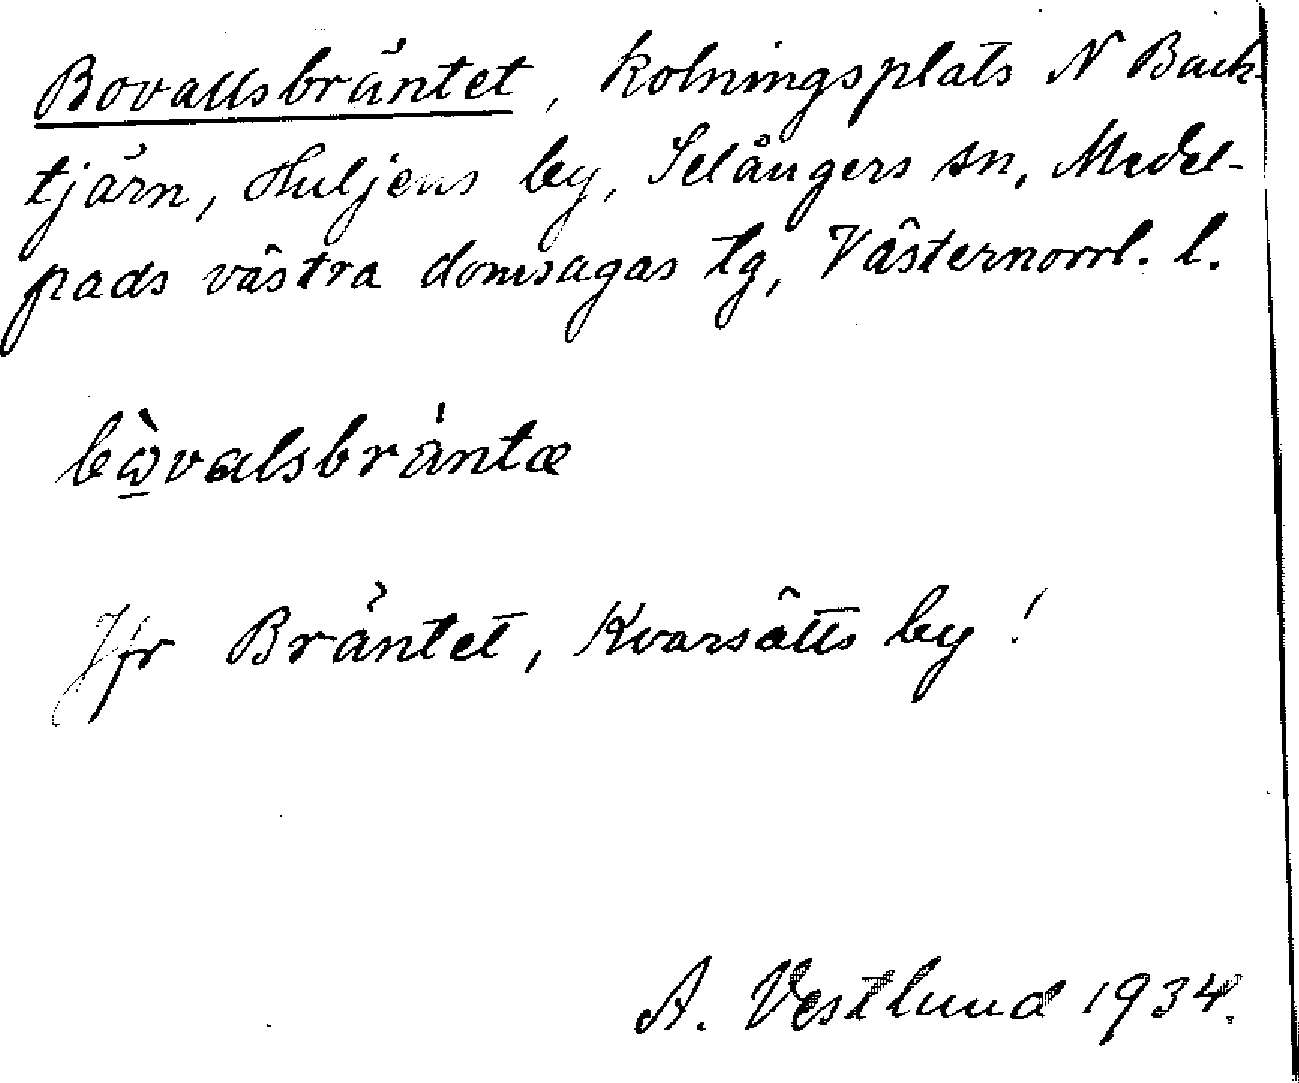 Bovallsbräntet, kolningsplats N Back-
tjärn, Huljens by, Selångers sn, Medel-
pads västra domsagas tg, Västernorrl. l.
bὼ̲valsbräntæ
Jfr Bräntet, Kvarsätts by!
A. Vestlund 1934.